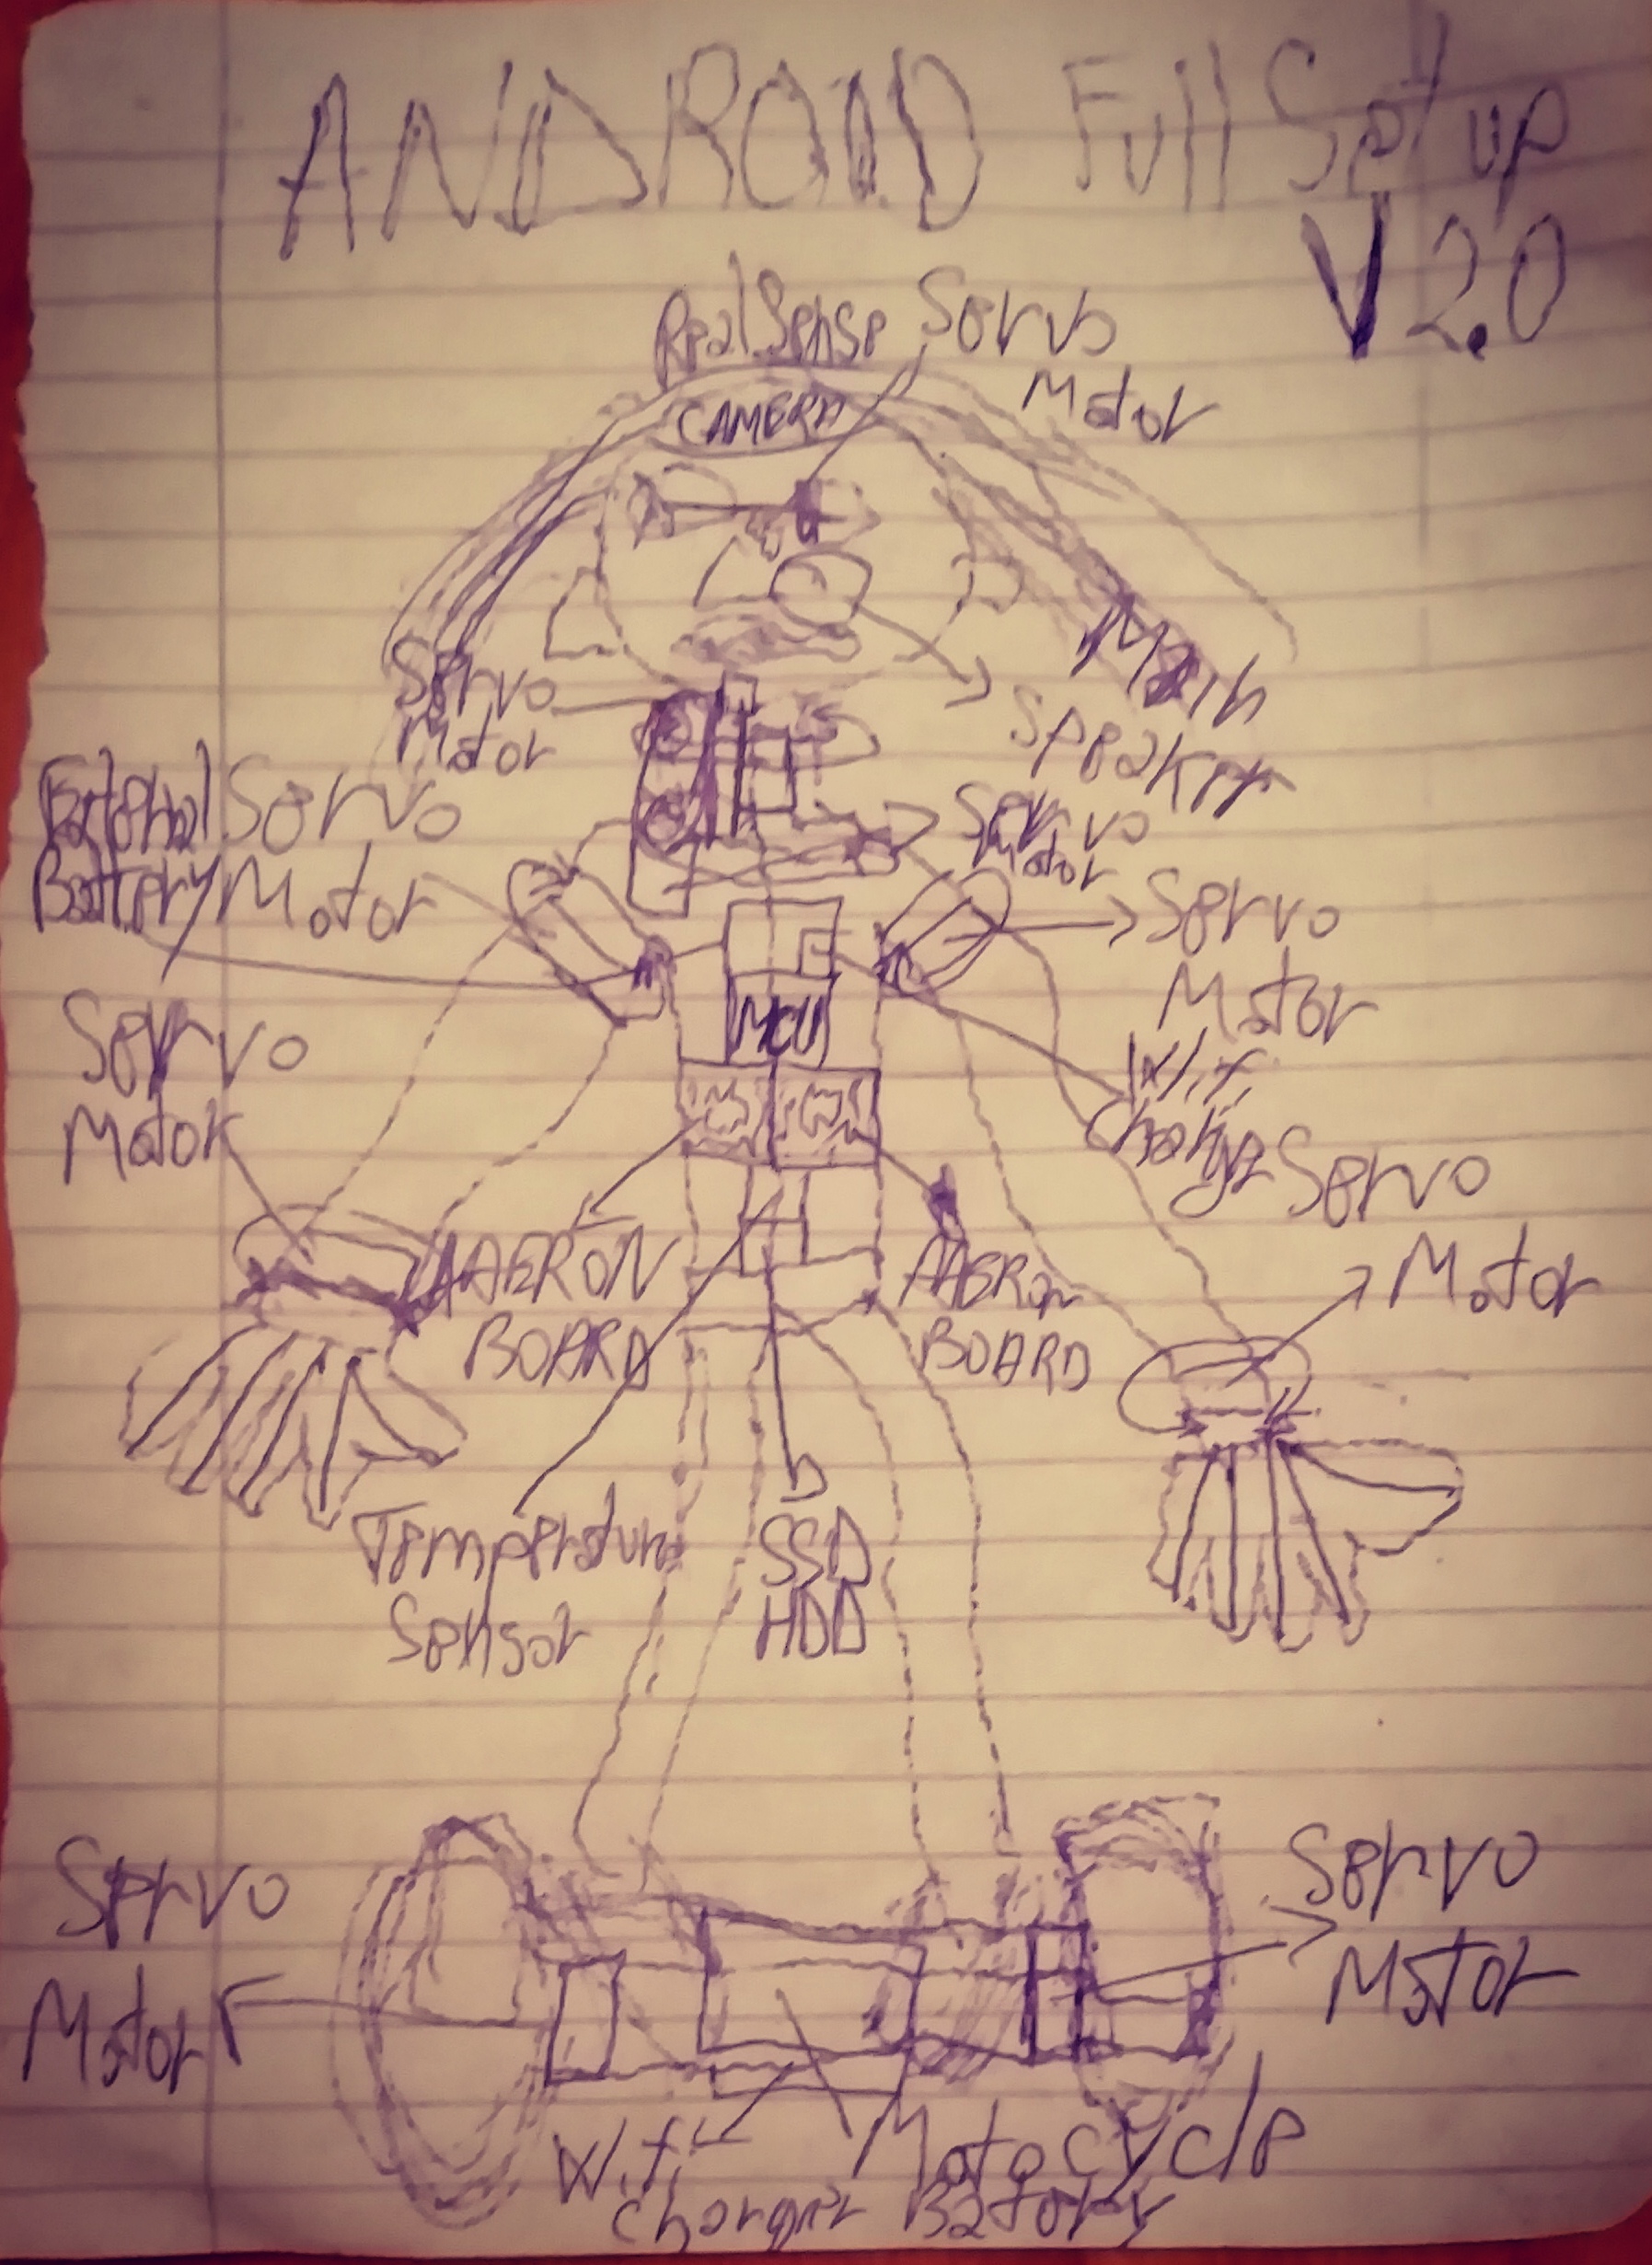 ANDROID Full Set up
V 2.0
RealSense Servo
Motor
CAMERA
Servo
Motor
Main
Speaker
External Servo
Battery Motor
Servo
Motor
Servo
Motor
MCU
Servo
Motor
Wifi
Servo
Motor
AAERON
BOARD
AAERon
BOARD
Temperature
Sensor
SSD
HDD
Servo
Motor
Servo
Motor
Wifi
charger
Motocycle
Battery